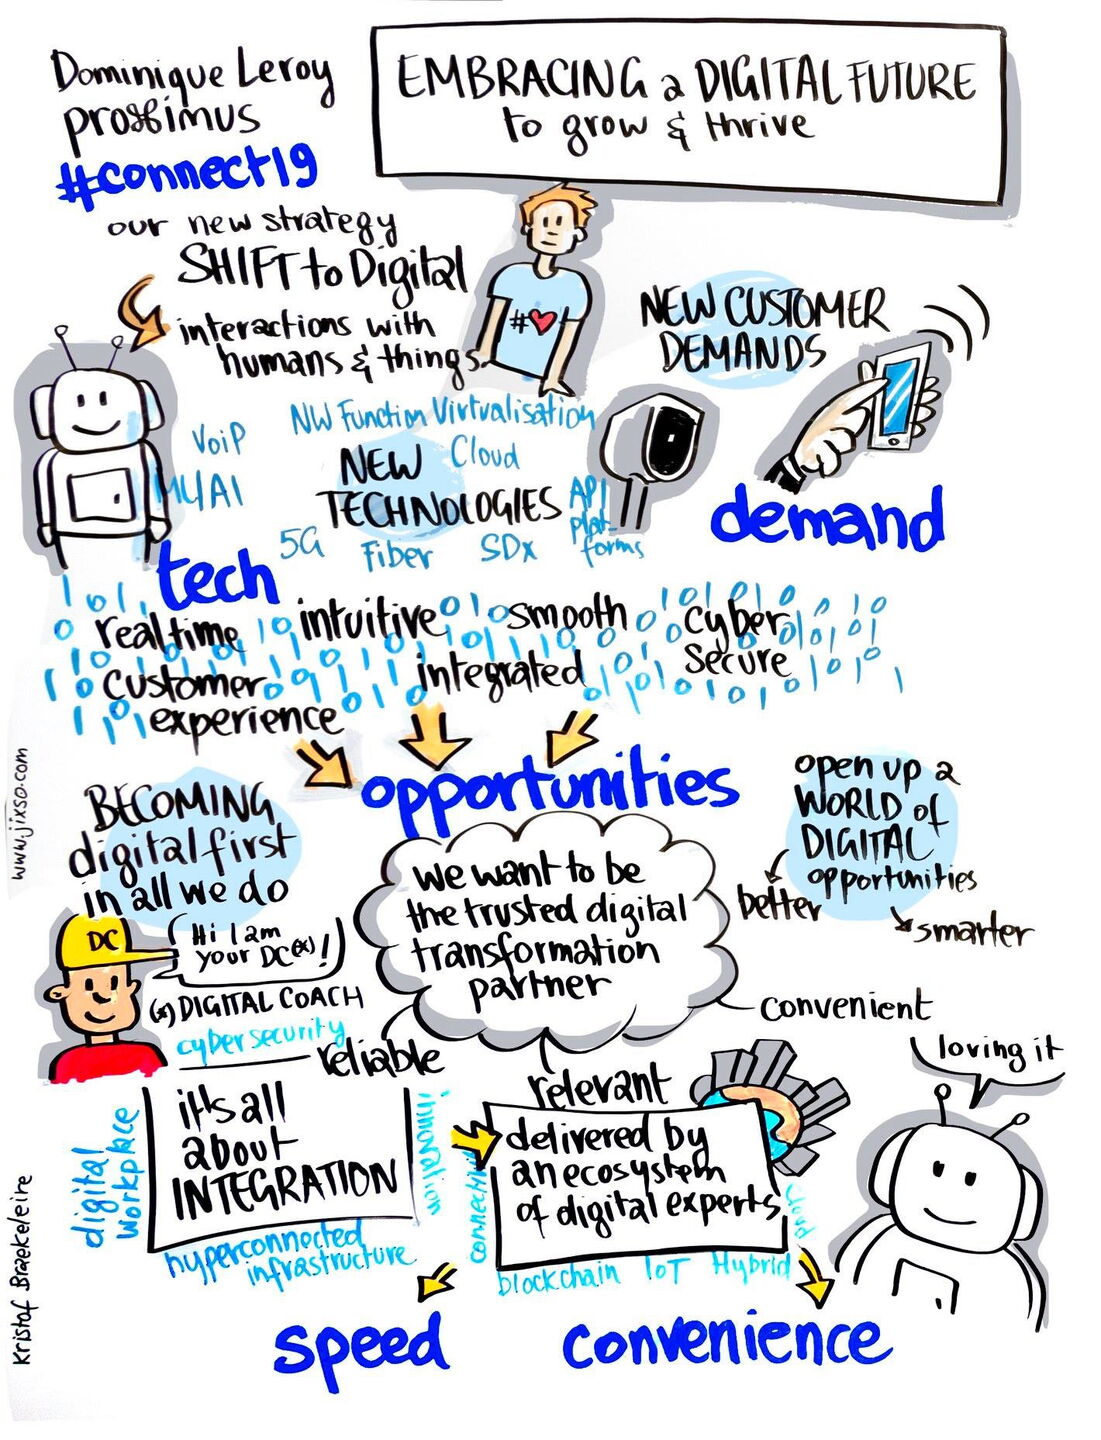 Dominique Leroy
proximus
#connect19
EMBRACING a DIGITAL FUTURE
to grow & thrive
our new strategy
SHIFT to Digital
interactions with
humans & things
#
NEW CUSTOMER
DEMANDS
demand
NW Function Virtualisation
VoiP
Cloud
NEW
TECHNOLOGIES
API
plat-
forms
5G
Fiber
SDx
tech
realtime
intuitive
smooth
cyber
secure
customer
integrated
experience
opportunities
BECOMING
digital first
in all we do
DC
Hi I am
your DC(*)!
(*) DIGITAL COACH
cybersecurity
we want to be
the trusted digital
transformation
partner
open up a
WORLD of
DIGITAL
opportunities
better
smarter
convenient
reliable
relevant
loving it
it's all
about
INTEGRATION
digital
workplace
innovation
hyperconnected
infrastructure
delivered by
an ecosystem
of digital experts
blockchain IoT Hybrid
cloud
speed
convenience
www.jixso.com
Kristof Braekeleire